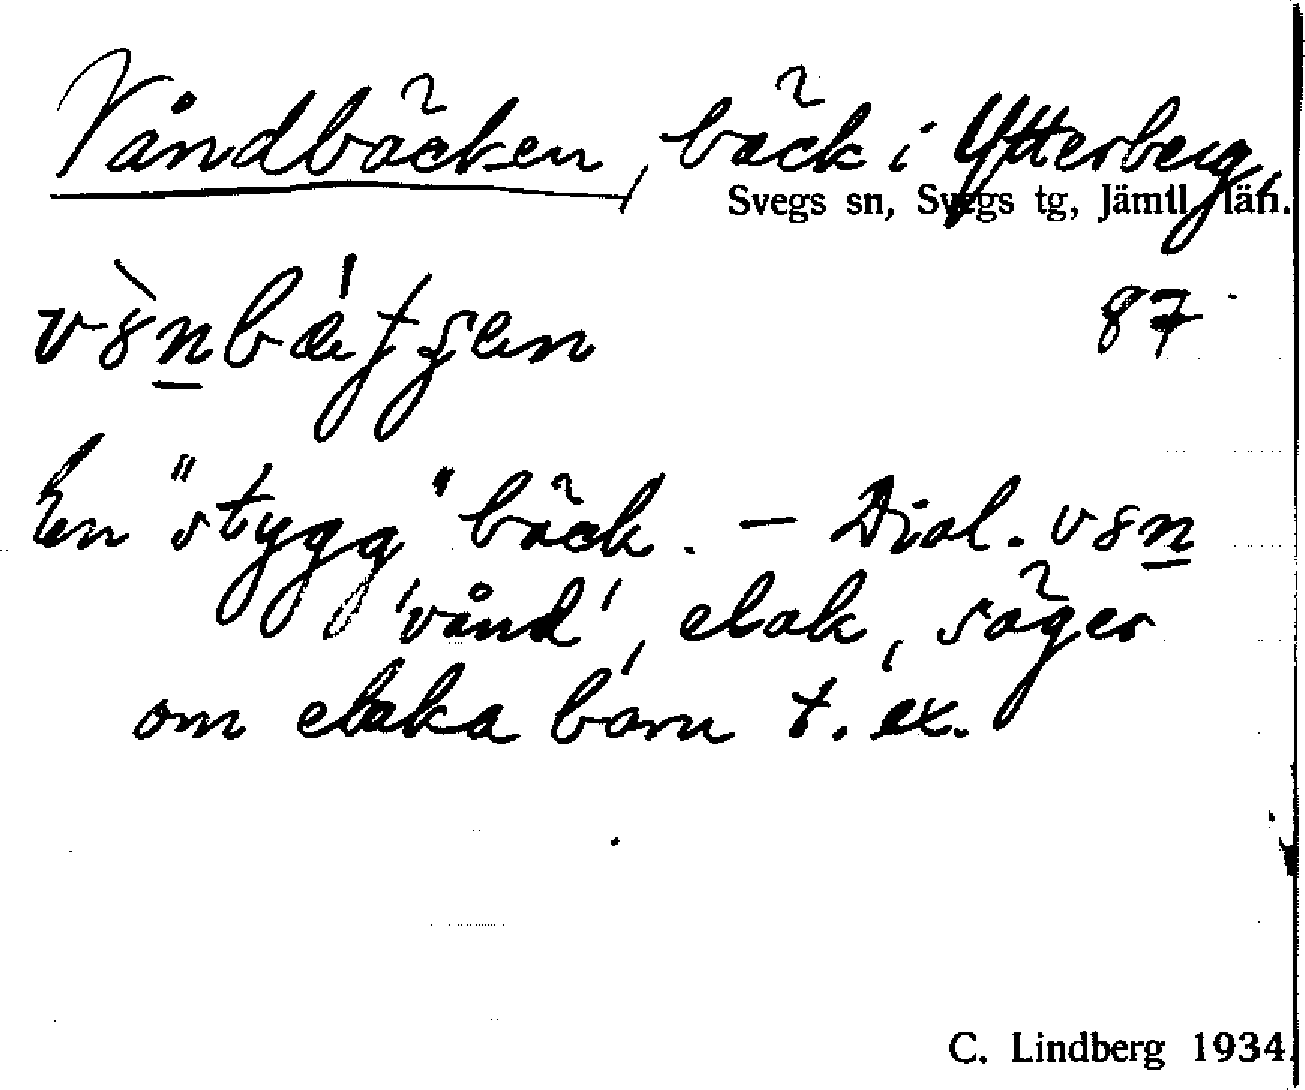 Våndbäcken, bäck i Ytterberg,
Svegs sn, Svegs tg, Jämtl. län.
87
En "stygg" bäck. – Dial. v8n
'vånd', elak, säger
om elaka barn t. ex.
C. Lindberg 1934.